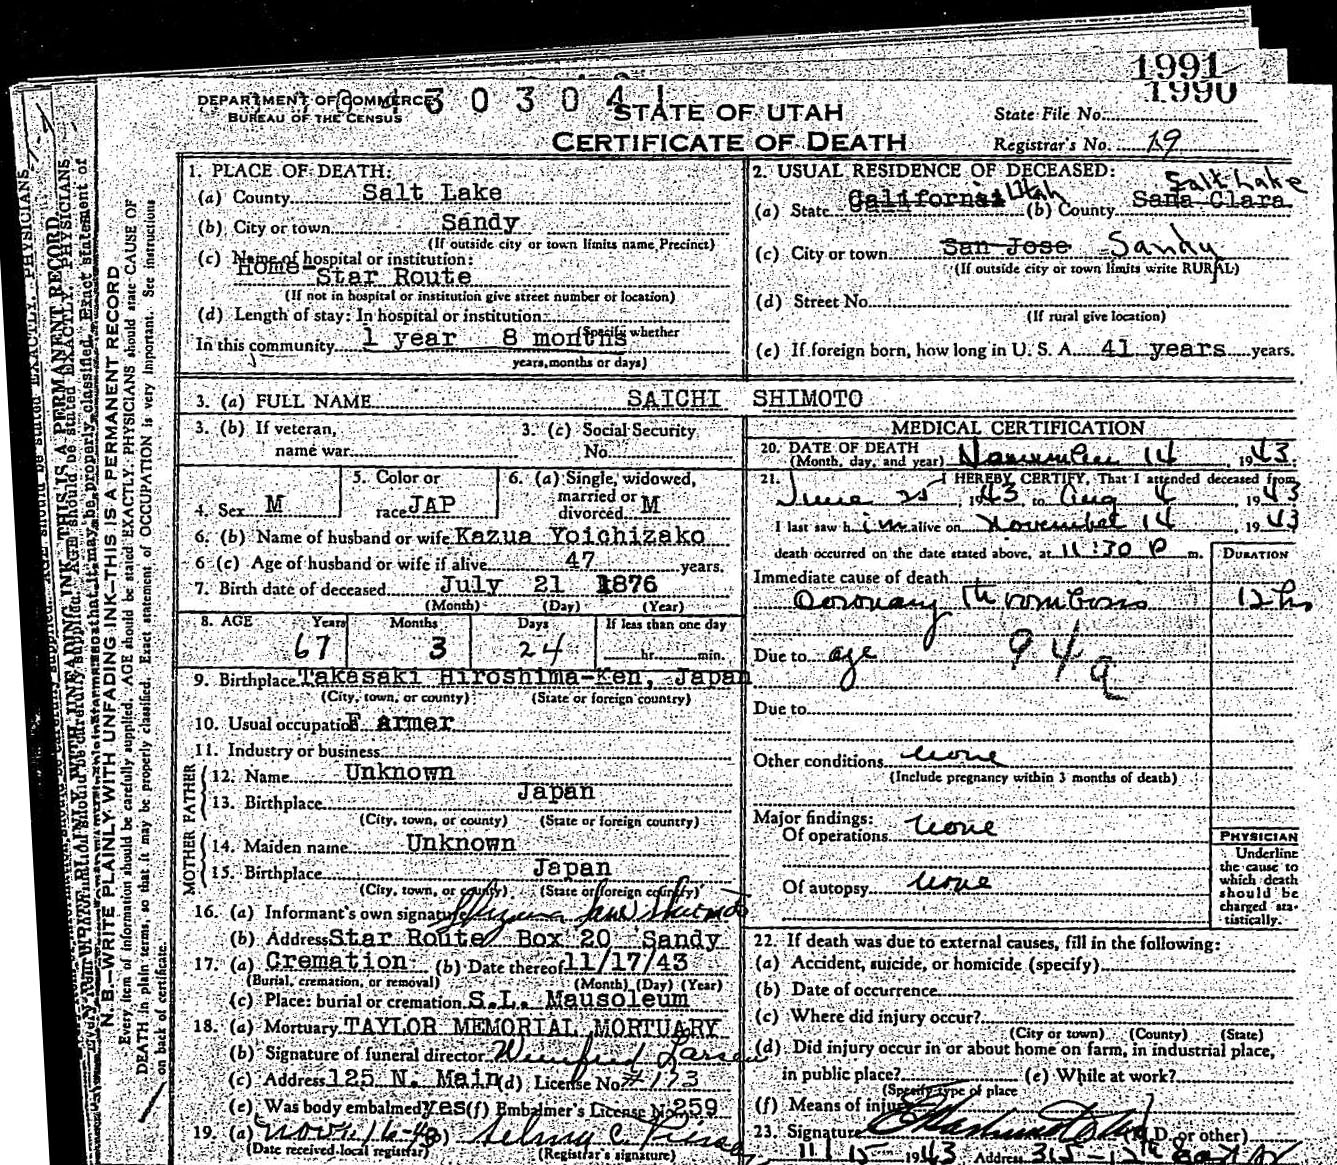 1991
1990
DEPARTMENT OF COMMERCE
BUREAU OF THE CENSUS
3 0 3 0 4 1
STATE OF UTAH
CERTIFICATE OF DEATH
State File No.
Registrar's No. 19
1. PLACE OF DEATH:
(a) County Salt Lake
(b) City or town Sandy
(If outside city or town limits name Precinct)
(c) Name of hospital or institution:
Home-Star Route
(If not in hospital or institution give street number or location)
(d) Length of stay: In hospital or institution
(Specify whether
In this community 1 year 8 months
years, months or days)
2. USUAL RESIDENCE OF DECEASED:
Salt Lake
(a) State California Utah (b) County Sana Clara
(c) City or town San Jose Sandy
(If outside city or town limits write RURAL)
(d) Street No.
(If rural give location)
(e) If foreign born, how long in U. S. A. 41 years years.
3. (a) FULL NAME SAICHI SHIMOTO
3. (b) If veteran,
name war
3. (c) Social Security
No.
4. Sex M
5. Color or
race JAP
6. (a) Single, widowed,
married or
divorced M
6. (b) Name of husband or wife Kazua Yoichizako
6 (c) Age of husband or wife if alive 47 years.
7. Birth date of deceased July 21 1876
(Month) (Day) (Year)
8. AGE Years Months Days If less than one day
67 3 24 hr. min.
9. Birthplace Takasaki Hiroshima-Ken, Japan
(City, town, or county) (State or foreign country)
10. Usual occupation F armer
11. Industry or business
FATHER
12. Name Unknown
13. Birthplace Japan
(City, town, or county) (State or foreign country)
MOTHER
14. Maiden name Unknown
15. Birthplace Japan
(City, town, or county) (State or foreign country)
16. (a) Informant's own signature
(b) Address Star Route Box 20 Sandy
17. (a) Cremation (b) Date thereof 11/17/43
(Burial, cremation, or removal) (Month) (Day) (Year)
(c) Place: burial or cremation S.L. Mausoleum
18. (a) Mortuary TAYLOR MEMORIAL MORTUARY
(b) Signature of funeral director
(c) Address 125 N. Main (d) License No. #173
(e) Was body embalmed yes (f) Embalmer's License No. 259
19. (a) Nov. 16-43 (b)
(Date received local registrar) (Registrar's signature)
MEDICAL CERTIFICATION
20. DATE OF DEATH
(Month, day, and year) November 14, 1943.
21. I HEREBY CERTIFY, That I attended deceased from
June 25, 1943 to Aug 4, 1943
I last saw h im alive on November 14, 1943
death occurred on the date stated above, at 11:30 P m.
DURATION
Immediate cause of death
Coronary Thrombosis 12 hrs
Due to age 94a
Due to
Other conditions none
(Include pregnancy within 3 months of death)
Major findings:
Of operations none
Of autopsy none
PHYSICIAN
Underline
the cause to
which death
should be
charged sta-
tistically.
22. If death was due to external causes, fill in the following:
(a) Accident, suicide, or homicide (specify)
(b) Date of occurrence
(c) Where did injury occur?
(City or town) (County) (State)
(d) Did injury occur in or about home on farm, in industrial place,
in public place? (e) While at work?
(Specify type of place
(f) Means of injury
23. Signature (M.D. or other)
11/15 1943 Address 315-
N. B.—WRITE PLAINLY WITH UNFADING INK—THIS IS A PERMANENT RECORD
Every item of information should be carefully supplied. AGE should be stated EXACTLY. PHYSICIANS should state CAUSE OF
DEATH in plain terms, so that it may be properly classified. Exact statement of OCCUPATION is very important. See instructions
on back of certificate.